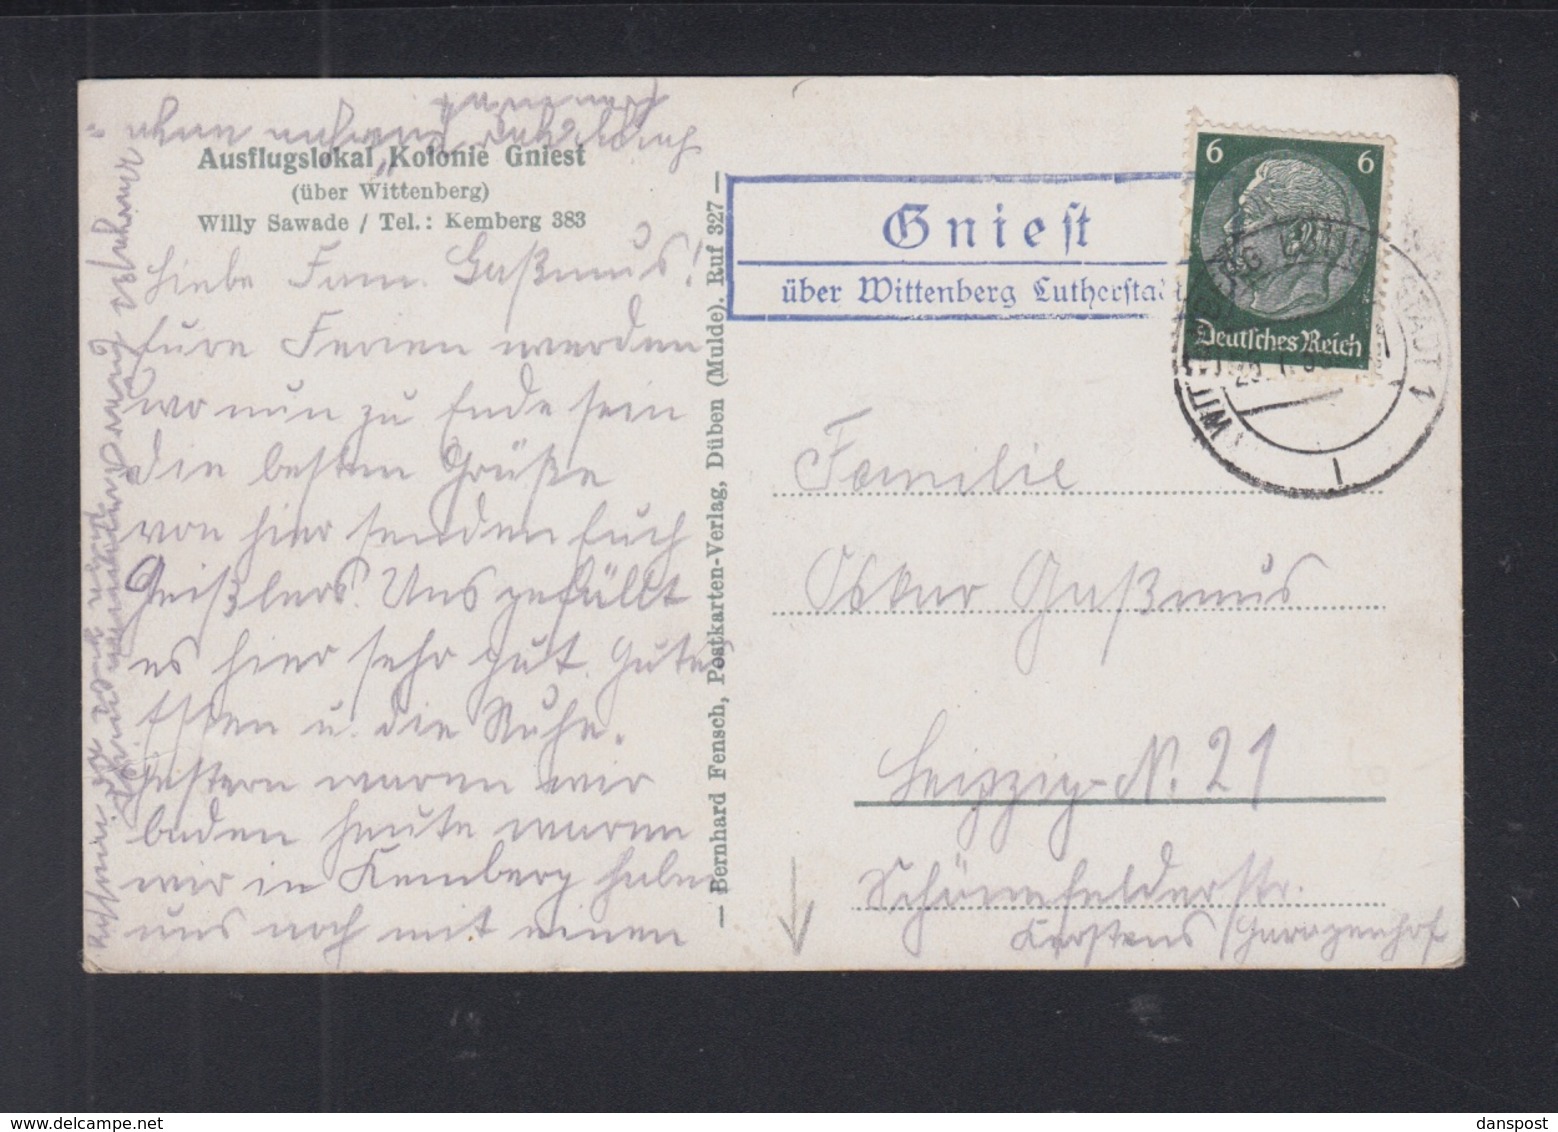 Ausflugslokal „Kolonie Gniest
(über Wittenberg)
Willy Sawade / Tel.: Kemberg 383
Liebe Fam. Gaßmus!
Eure Ferien werden
wo nun zu Ende sein
die besten Grüße
von hier senden Euch
Geißlers. Uns gefällt
es hier sehr gut. Gutes
Essen u. die Ruhe.
Gestern waren wir
baden heute waren
wir in Kemberg haben
uns noch mit einen
— Bernhard Fensch, Postkarten-Verlag, Düben (Mulde). Ruf 327 —
Gniest
über Wittenberg Lutherstad
6 6
Deutsches Reich
STADT 1
Familie
Oskar Gaßmus
Leipzig-N. 21
Schönefelderstr.
Kerstens Garagenhof
danspost
delcampe.net